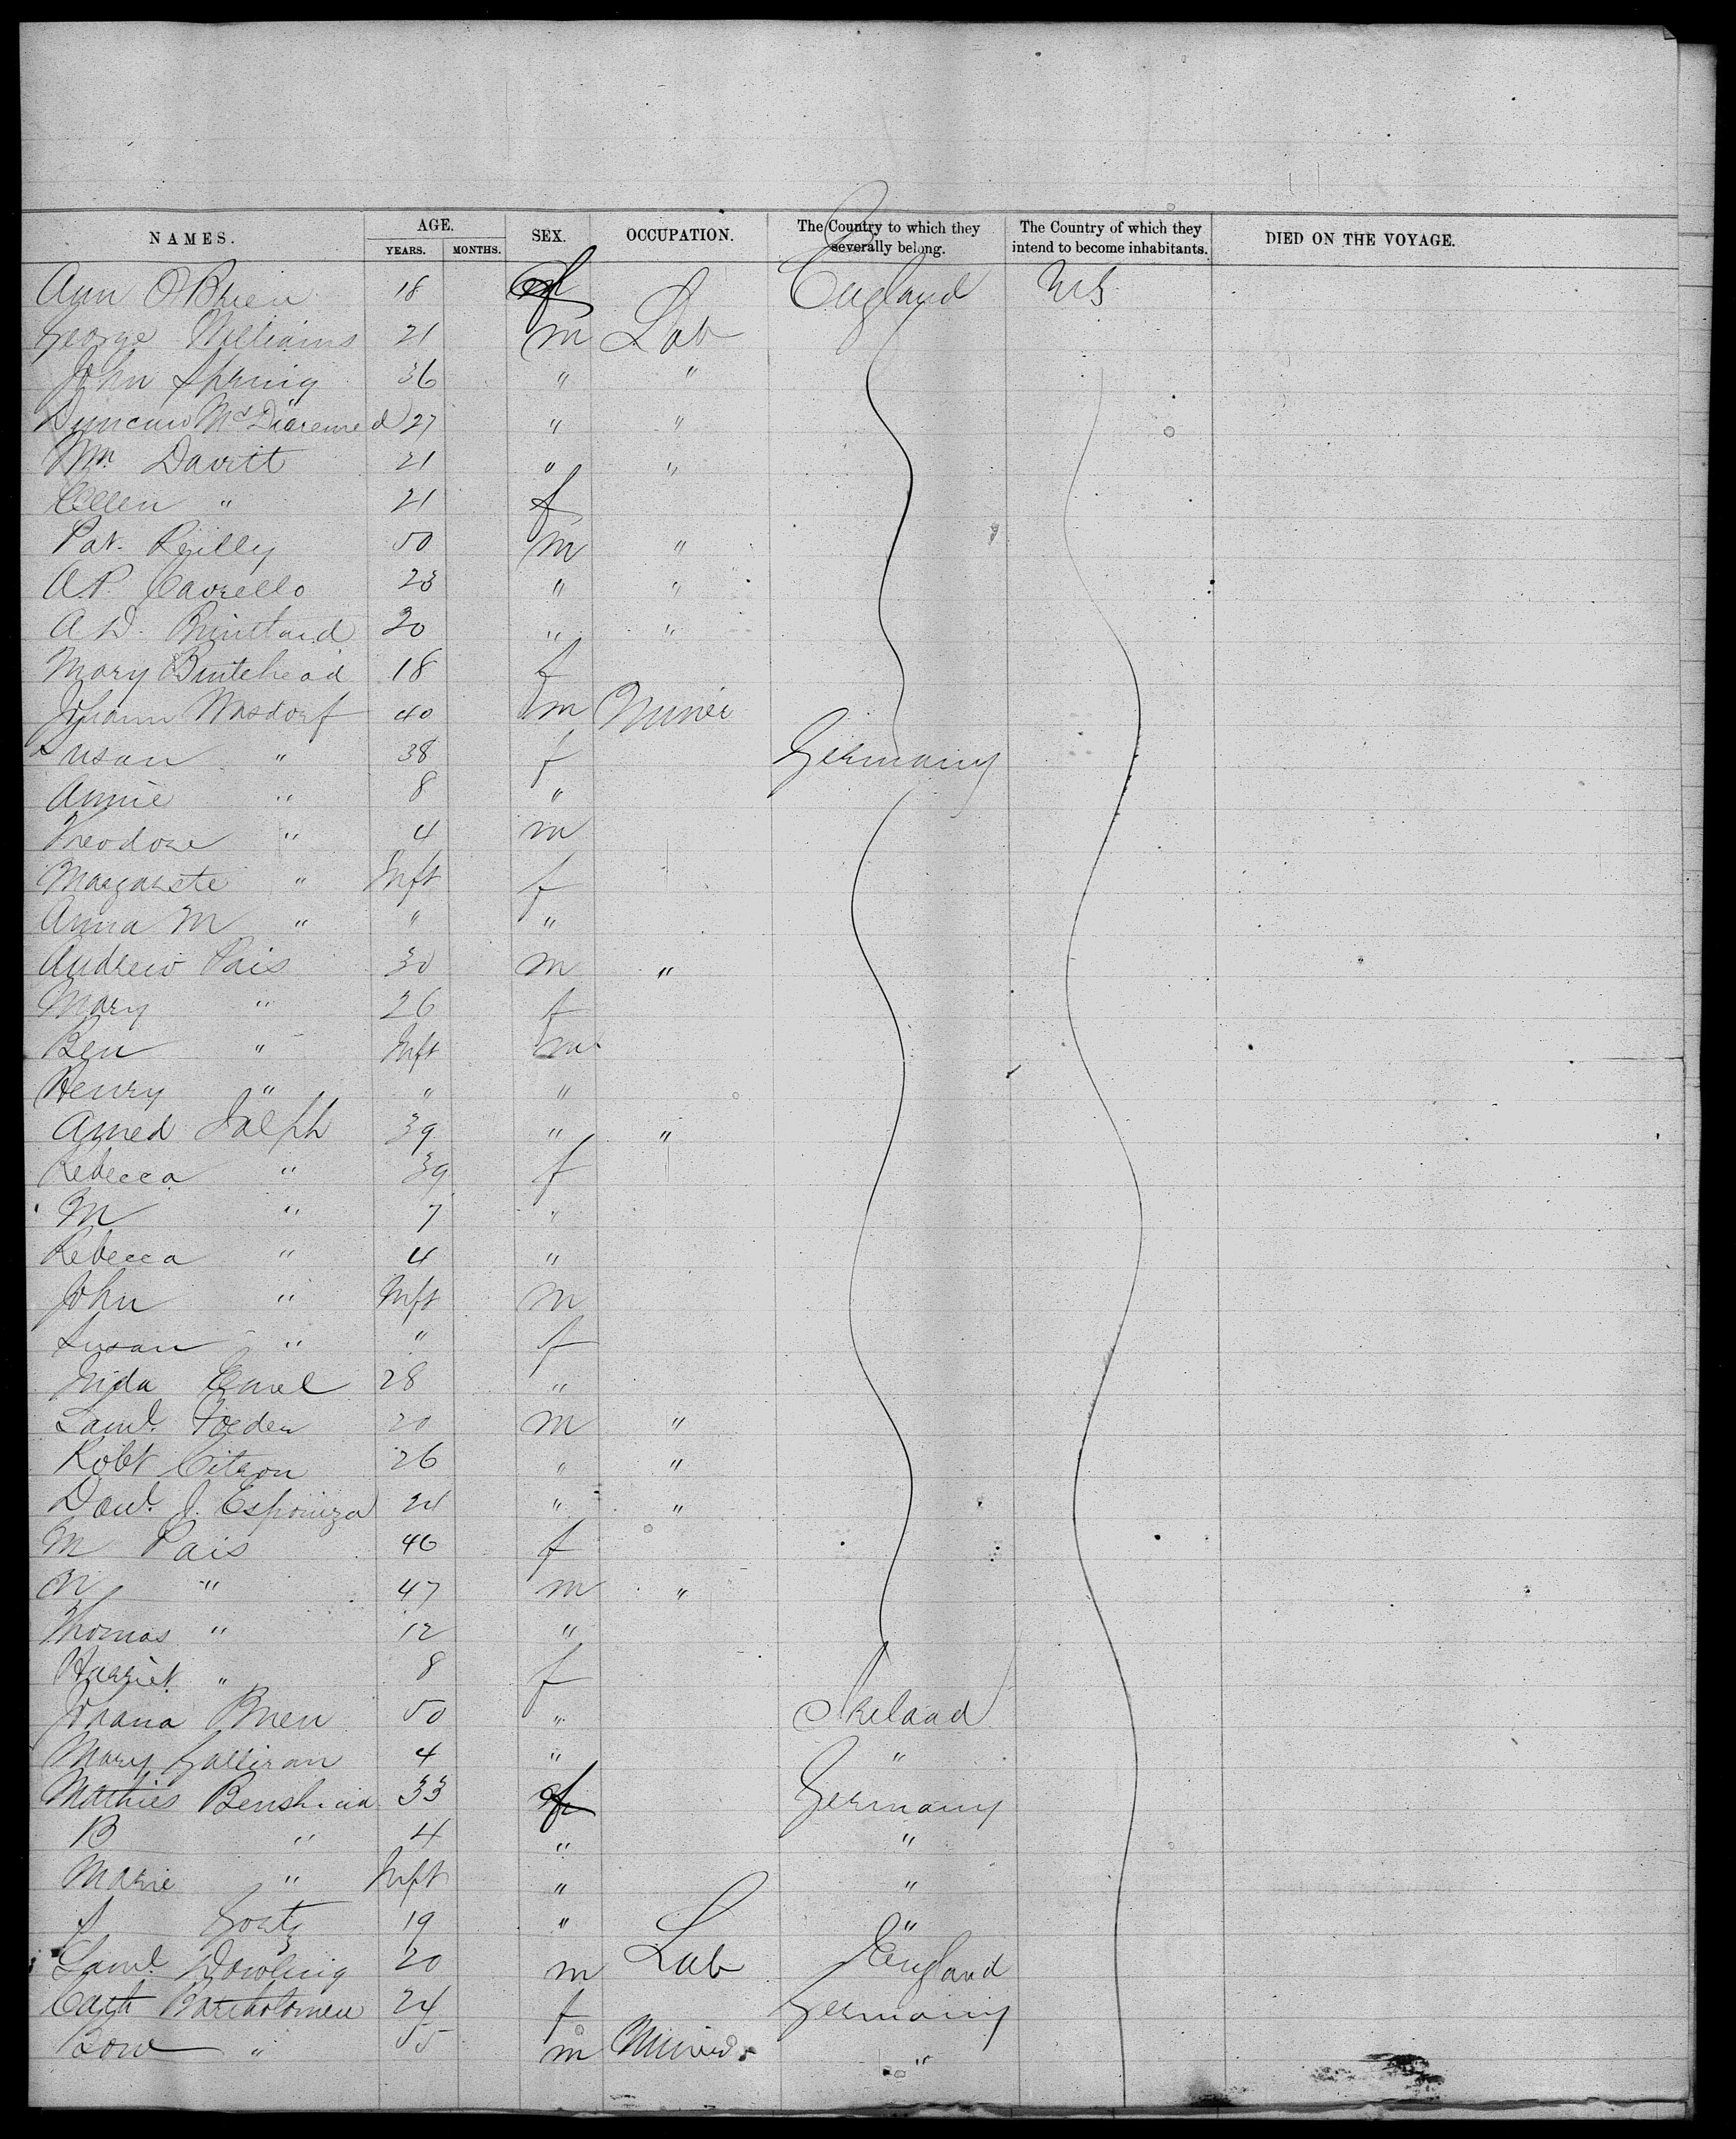 NAMES. AGE. YEARS. MONTHS. SEX. OCCUPATION. The Country to which they severally belong. The Country of which they intend to become inhabitants. DIED ON THE VOYAGE.
Ann O'Brien 18 f England US
George Williams 21 m Lab
John Spring 36 " "
Duncan McDiaremed 27 " "
Wm Davitt 21 " "
Ellen " 21 f
Pat. Reilly 50 m "
A.P. Cavrello 23 " "
A.D. 20 " "
Mary 18 f
Johann Wasdorf 40 m Miner
Susan " 38 f Germany
Annie " 8 "
Theodore " 4 m
Margarete " Inft f
Anna M " " "
Andrew Pais 30 m "
Mary " 26 f
Ben " Inft m
Henry " " "
39 " "
Rebecca " 39 f
M " 7 "
Rebecca " 4 "
John " Inft m
Susan " " f
28 "
Saml. 20 m "
Robt Citron 26 " "
Danl. J. Espoinza 24 " "
M Pais 46 f
" 47 m "
Thomas " 12 "
Harriet " 8 f
Johana Brien 50 " Ireland
Mary Galliran 4 " "
Mathies 33 f Germany
B " 4 " "
Marie " Inft " "
19 " "
Saml. Dowling 20 m Lab England
Cath Bartholomew 24 f Germany
" 55 m Miner "